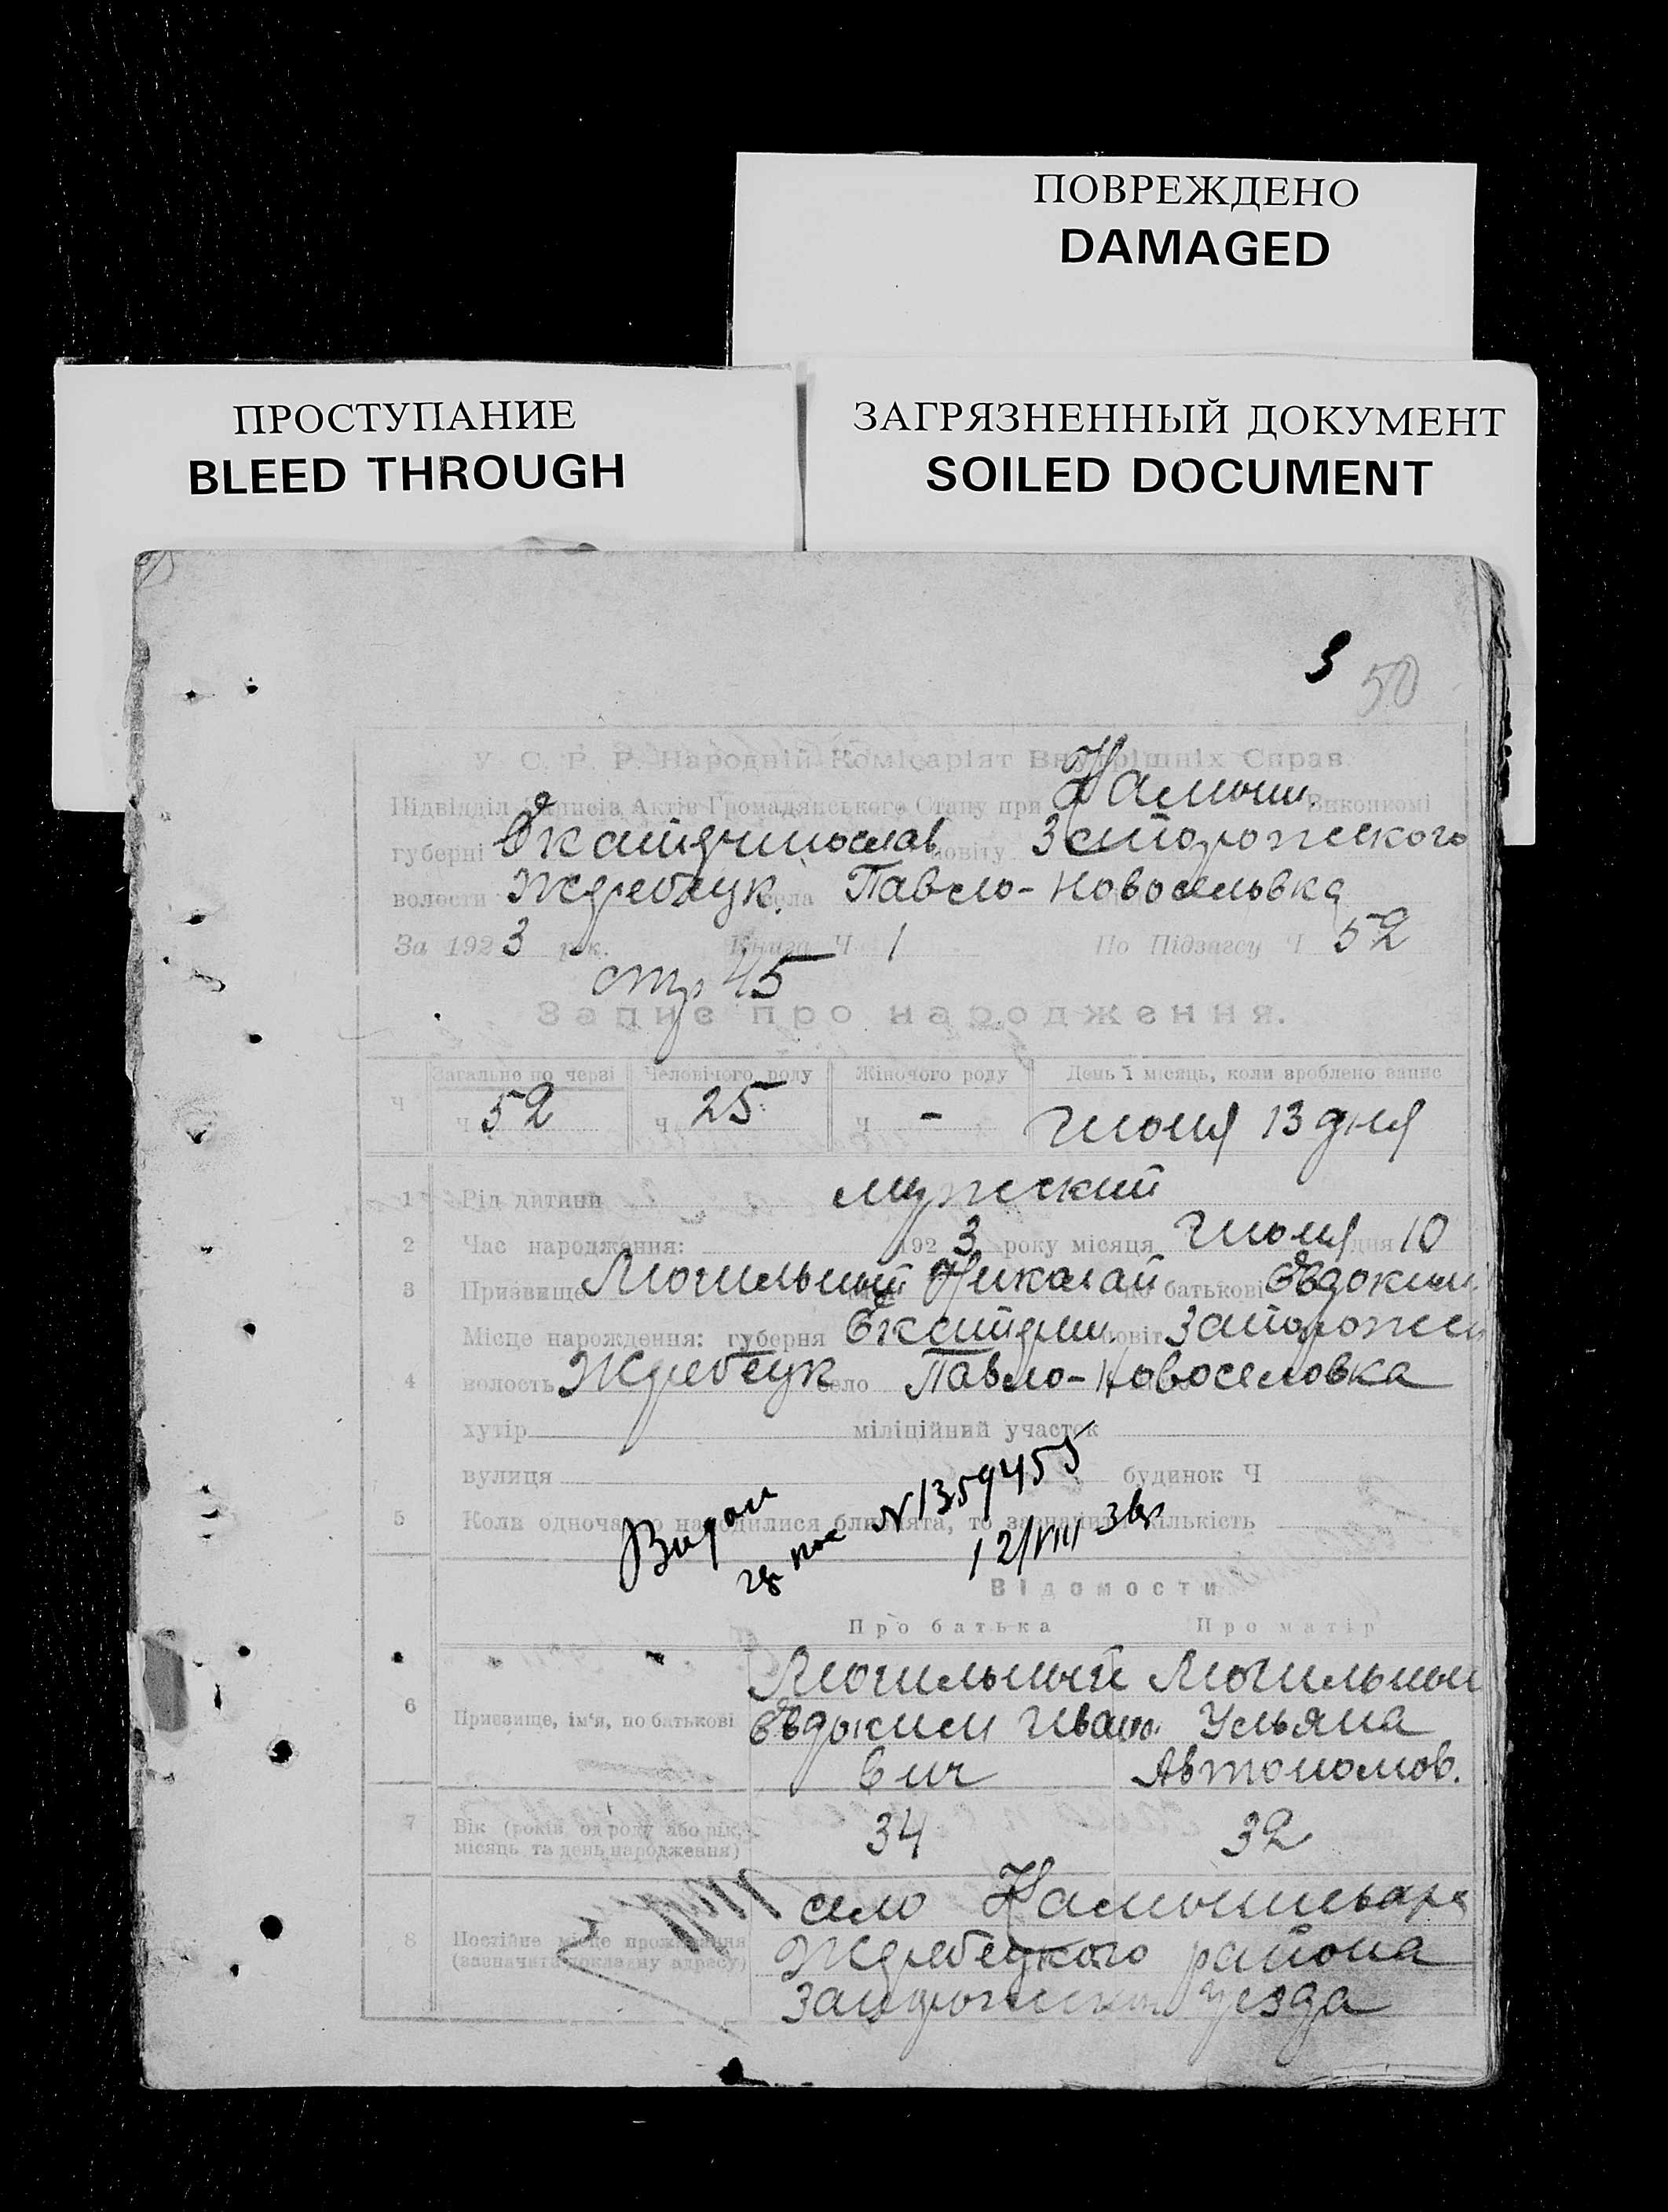 ПОВРЕЖДЕНО
DAMAGED
ПРОСТУПАНИЕ
BLEED THROUGH
ЗАГРЯЗНЕННЫЙ ДОКУМЕНТ
SOILED DOCUMENT
50
У. С. Р. Р. Народній Комісаріят Внутрішніх Справ.
Підвідділ Записів Актів Громадянського Стану при Камыш. Виконкомі
губерні Екатеринослав повіту Запорожского
волости Жеребецк. села Павло-Новоселовка
За 1923 рік. Книга Ч 1 По Підзагсу Ч 52
стр 45
Запис про народження.
Загальне по черзі Человічого роду Жіночого роду День і місяць, коли зроблено запис
Ч Ч 52 Ч 25 Ч - Июня 13 дня
1 Рід дитини мужский
2 Час народження: 1923 року місяця Июня дня 10
3 Призвище Могильный Николай по батькові Евдоким
Місце нарождення: губерня Екатерин. повіт Запорожск
4 волость Жеребецк село Павло-Новоселовка
хутір міліційний участок
вулиця будинок Ч
5 Коли одночасно народилися близнята, то зазначити кількість
N 1359455
12/VIII 3
Відомости
Про батька Про матір
6 Призвище, ім'я, по батькові
Могильный Могильная
Евдоким Ивано Ульяна
вич Автономов.
7 Вік (років од роду або рік, місяць та день народження) 34 32
8 Постійне місце проживання (зазначити докладну адресу)
село Камышеваха
Жеребецкого района
Запорожского уезда